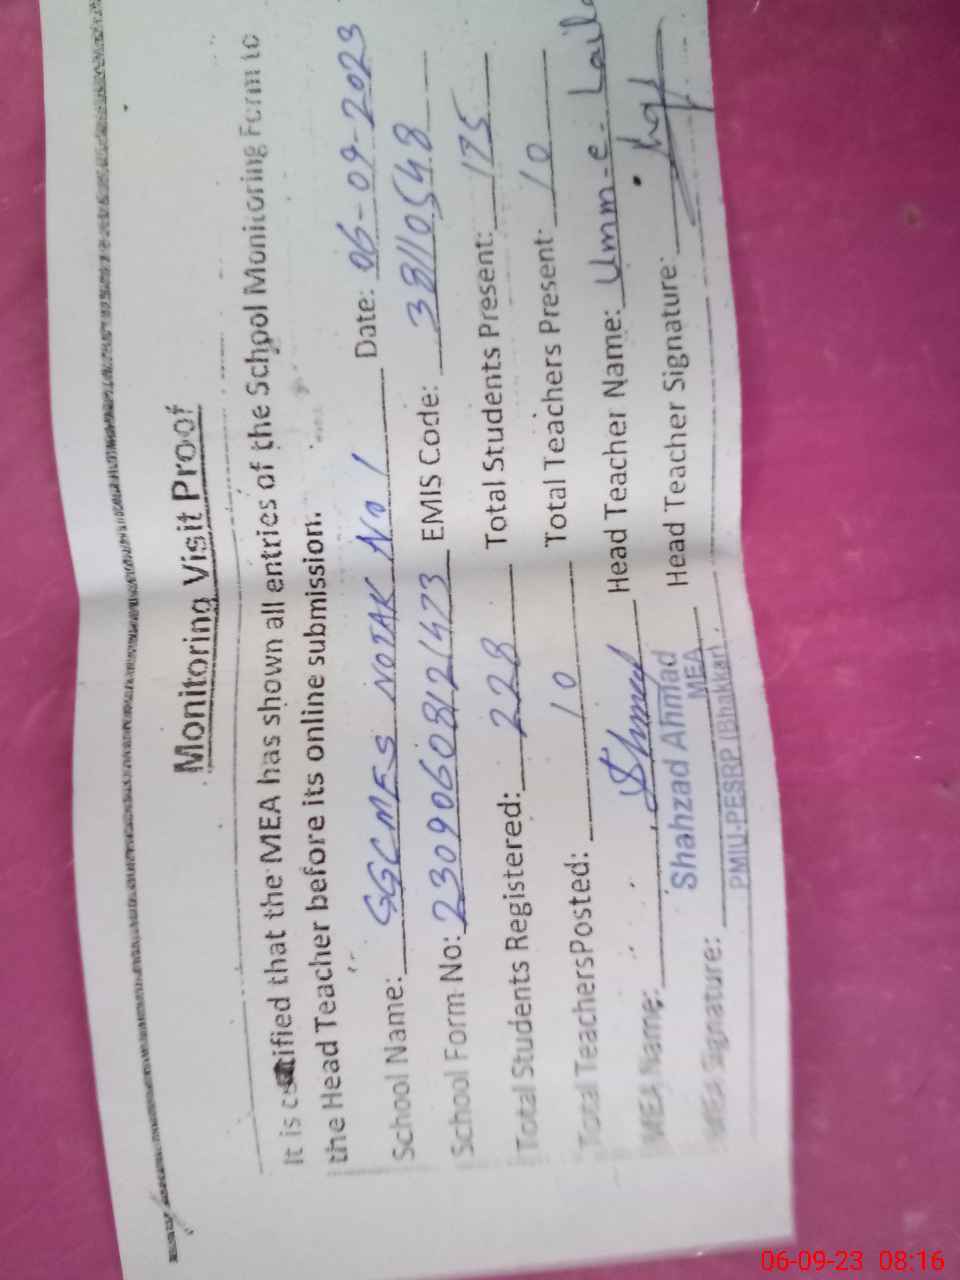 Monitoring Visit Proof
It is certified that the MEA has shown all entries of the School Monitoring Form to
the Head Teacher before its online submission.
School Name: GGCMES NOTAK No 1 Date: 06-09-2023
School Form No: 23090608121473 EMIS Code: 38110548
Total Students Registered: 228 Total Students Present: 175
Total Teachers Posted: 10 Total Teachers Present: 10
MEA Name: Head Teacher Name: Umm-e-Laila
Shahzad Ahmad
MEA
PMIU-PESRP (Bhakkar)
MEA Signature: Head Teacher Signature:
06-09-23 08:16